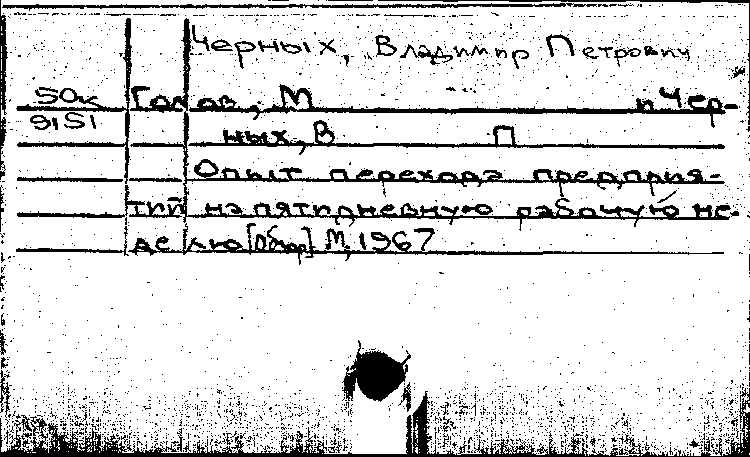 Черных, Владимир Петрович
50к Голов, М и Чер-
9151 ных, В П
Опыт перехода предприя-
тий на пятидневную рабочую не-
делю [Обзор]. М, 1967